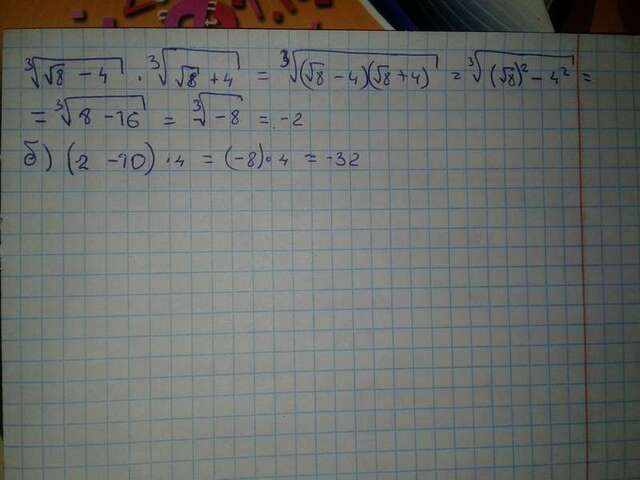 ∛(√8 - 4) · ∛(√8 + 4) = ∛((√8 - 4)(√8 + 4)) = ∛((√8)² - 4²) =
= ∛(8 - 16) = ∛(-8) = -2
б) (2 - 10) · 4 = (-8) · 4 = -32